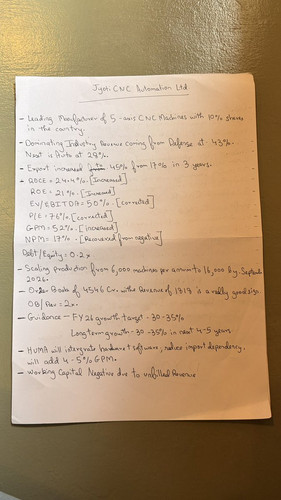 Jyoti CNC Automation Ltd
- Leading Manufacturer of 5-axis CNC Machines with 10% shares
in the country.
- Dominating Industry Revenue coming from Defense at 43%.
Next is Auto at 28%.
- Export increased to 45% from 17% in 3 years.
- ROCE = 24.4% [Increased]
ROE = 21% [Increased]
EV/EBITDA = 50% [corrected]
P/E = 76% [corrected]
GPM = 52% [increased]
NPM = 17% [Recovered from negative]
Debt/Equity = 0.2x
- Scaling Production from 6,000 machines per annum to 16,000 by September
2026.
- Order Book of 4546 Cr. with Revenue of 1717 is a really good sign.
OB/Rev = 2x.
- Guidance - FY26 growth target - 30-35%
Long term growth - 30-35% in next 4-5 years
- HUMA will integrate hardware + software, reduce import dependency.
will add 4-5% GPM.
- Working Capital Negative due to unbilled Revenue